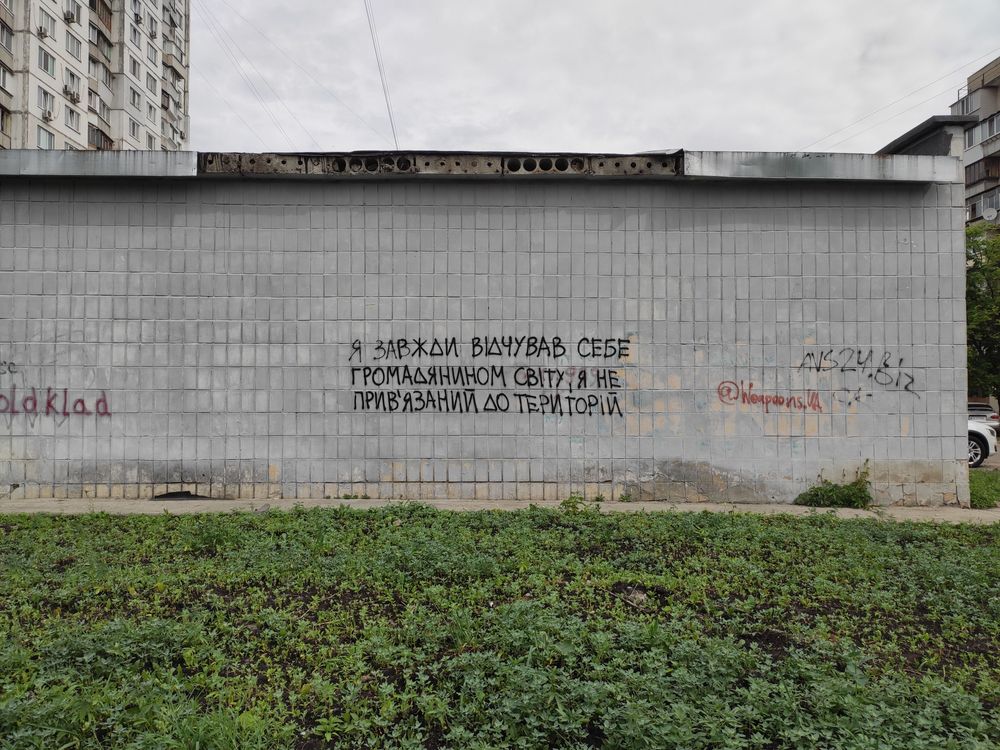 Я ЗАВЖДИ ВІДЧУВАВ СЕБЕ
ГРОМАДЯНИНОМ СВІТУ, Я НЕ
ПРИВ'ЯЗАНИЙ ДО ТЕРИТОРІЙ
AVS24.BIZ
@Weapoons.UA
oldklad